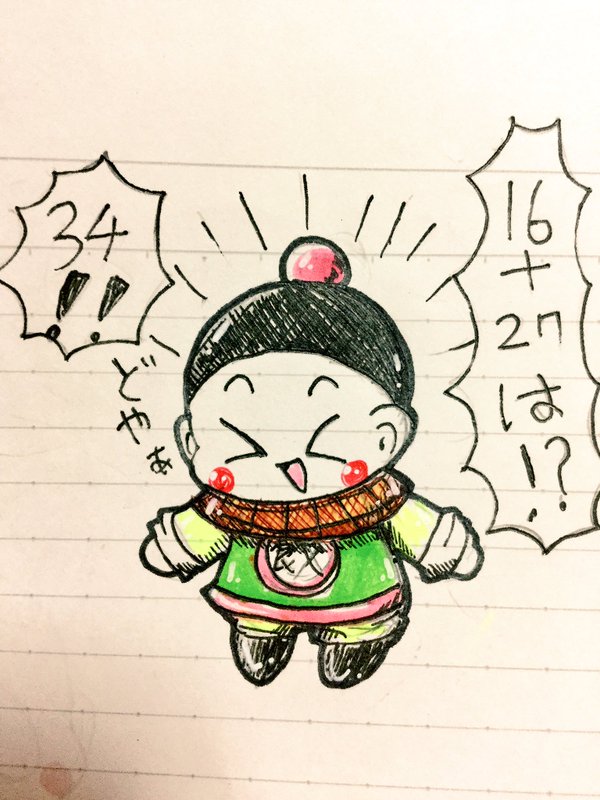 16
+
27
は!?
34
!!
どやぁ